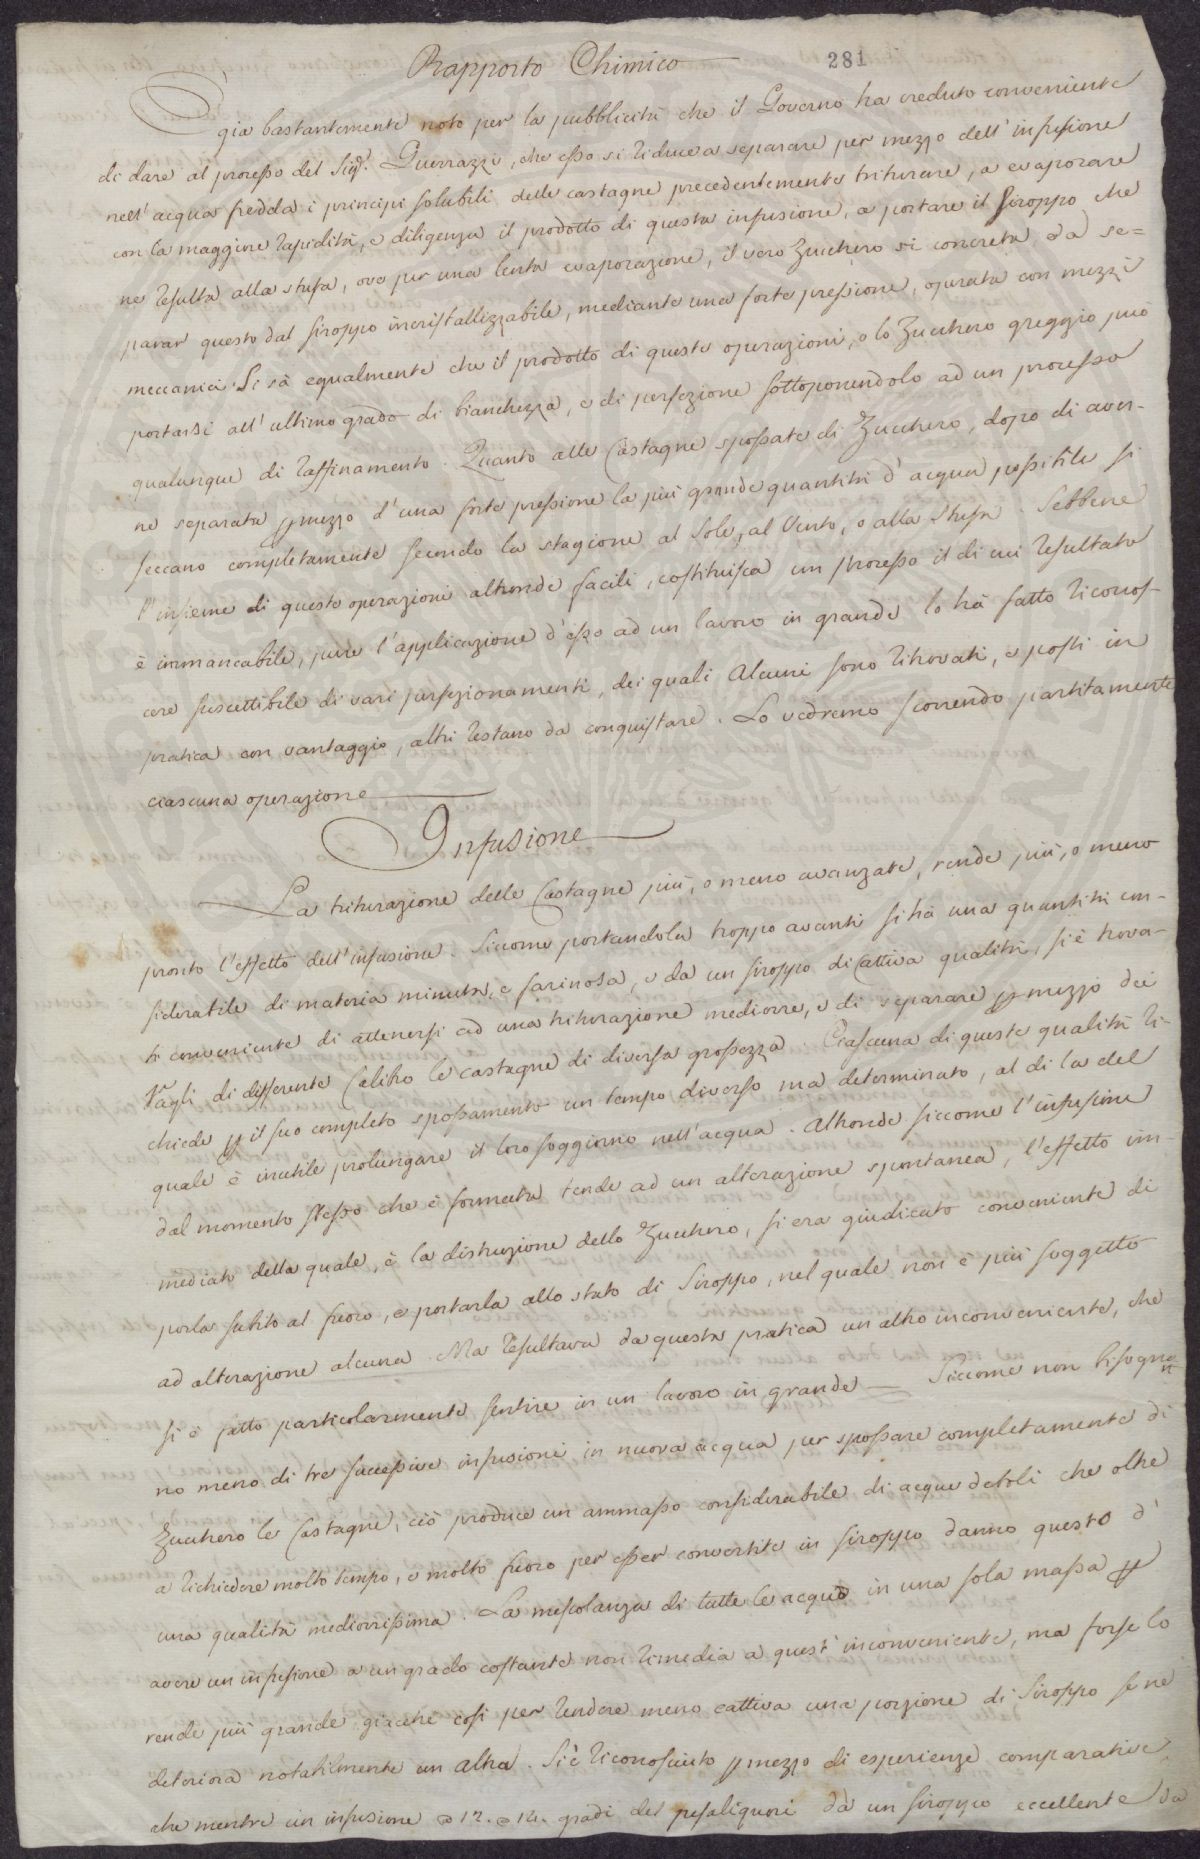 Rapporto Chimico
281
È già bastantemente noto per la pubblicità che il Governo ha creduto conveniente
di dare al processo del Sig.r Guerrazzi, che esso si riduce a separare per mezzo dell'infusione
nell'acqua fredda i principi solubili delle castagne precedentemente triturare, a evaporare
con la maggiore rapidità, e diligenza il prodotto di questa infusione, a portare il Siroppo che
ne resulta alla stufa, ove per una lenta evaporazione, il vero Zucchero si concreta, e a se=
parar questo dal siroppo incristallizzabile, mediante una forte pressione, operata con mezzi
meccanici. Si sà egualmente che il prodotto di queste operazioni, o lo Zucchero greggio può
portarsi all'ultimo grado di bianchezza, e di perfezione sottoponendolo ad un processo
qualunque di raffinamento. Quanto alle Castagne spossate di Zucchero, dopo di aver-
ne separata p mezzo d'una forte pressione la più grande quantità d'acqua possibile si
seccano completamente secondo la stagione al Sole, al Vento, o alla Stufa. Sebbene
l'insieme di queste operazioni altronde facili, costituisca un processo il di cui resultato
è immancabile, pure l'applicazione d'esso ad un lavoro in grande lo hà fatto riconos-
cere suscettibile di vari perfezionamenti, dei quali alcuni sono ritrovati, e posti in
pratica con vantaggio, altri restano da conquistare. Lo vedremo scorrendo partitamente
ciascuna operazione
Infusione
La triturazione delle Castagne più, o meno avanzata, rende più, o meno
pronto l'effetto dell'infusione. Siccome portandola troppo avanti si hà una quantità con-
siderabile di materia minuta, e farinosa, e da un siroppo di cattiva qualità, si è trova-
to conveniente di attenersi ad una triturazione mediocre, e di separare p mezzo dei
Vagli di differente Calibro le castagne di diversa grossezza. Ciascuna di queste qualità ri-
chiede p il suo completo spossamento un tempo diverso ma determinato, al di la del
quale è inutile prolungare il loro soggiorno nell'acqua. Altronde siccome l'infusione
dal momento stesso che è formata tende ad un alterazione spontanea, l'effetto im-
mediato della quale, è la distruzione dello Zucchero, si era giudicato conveniente di
porla subito al fuoco, e portarla allo stato di Siroppo, nel quale non è più soggetto
ad alterazione alcuna. Ma resultava da questa pratica un altro inconveniente, che
si è fatto particolarmente sentire in un lavoro in grande — Siccome non bisogna
no meno di tre successive infusioni in nuova acqua per spossare completamente di
Zucchero le Castagne, ciò produce un ammasso considerabile di acque deboli che oltre
a richiedere molto tempo, e molto fuoco per esser convertite in siroppo danno questo d'
una qualità mediocrissima. La mescolanza di tutte le acque in una sola massa p
avere un infusione a un grado costante non rimedia a quest'inconveniente, ma forse lo
rende più grande, giacchè così per rendere meno cattiva una porzione di Siroppo se ne
deteriora notabilmente un altra. Si è riconosciuto p mezzo di esperienze comparative,
che mentre un infusione a 12. a 14. gradi del pesaliquori dà un siroppo eccellente da